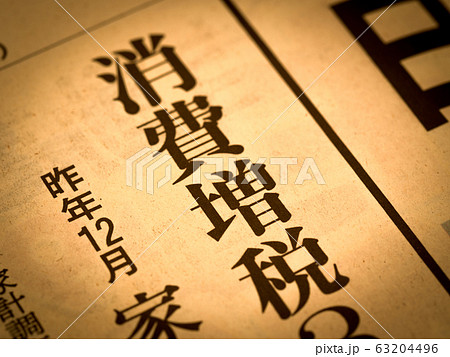 消費増税3
昨年12月
家
家計調
PIXTA
pixta.jp - 63204496